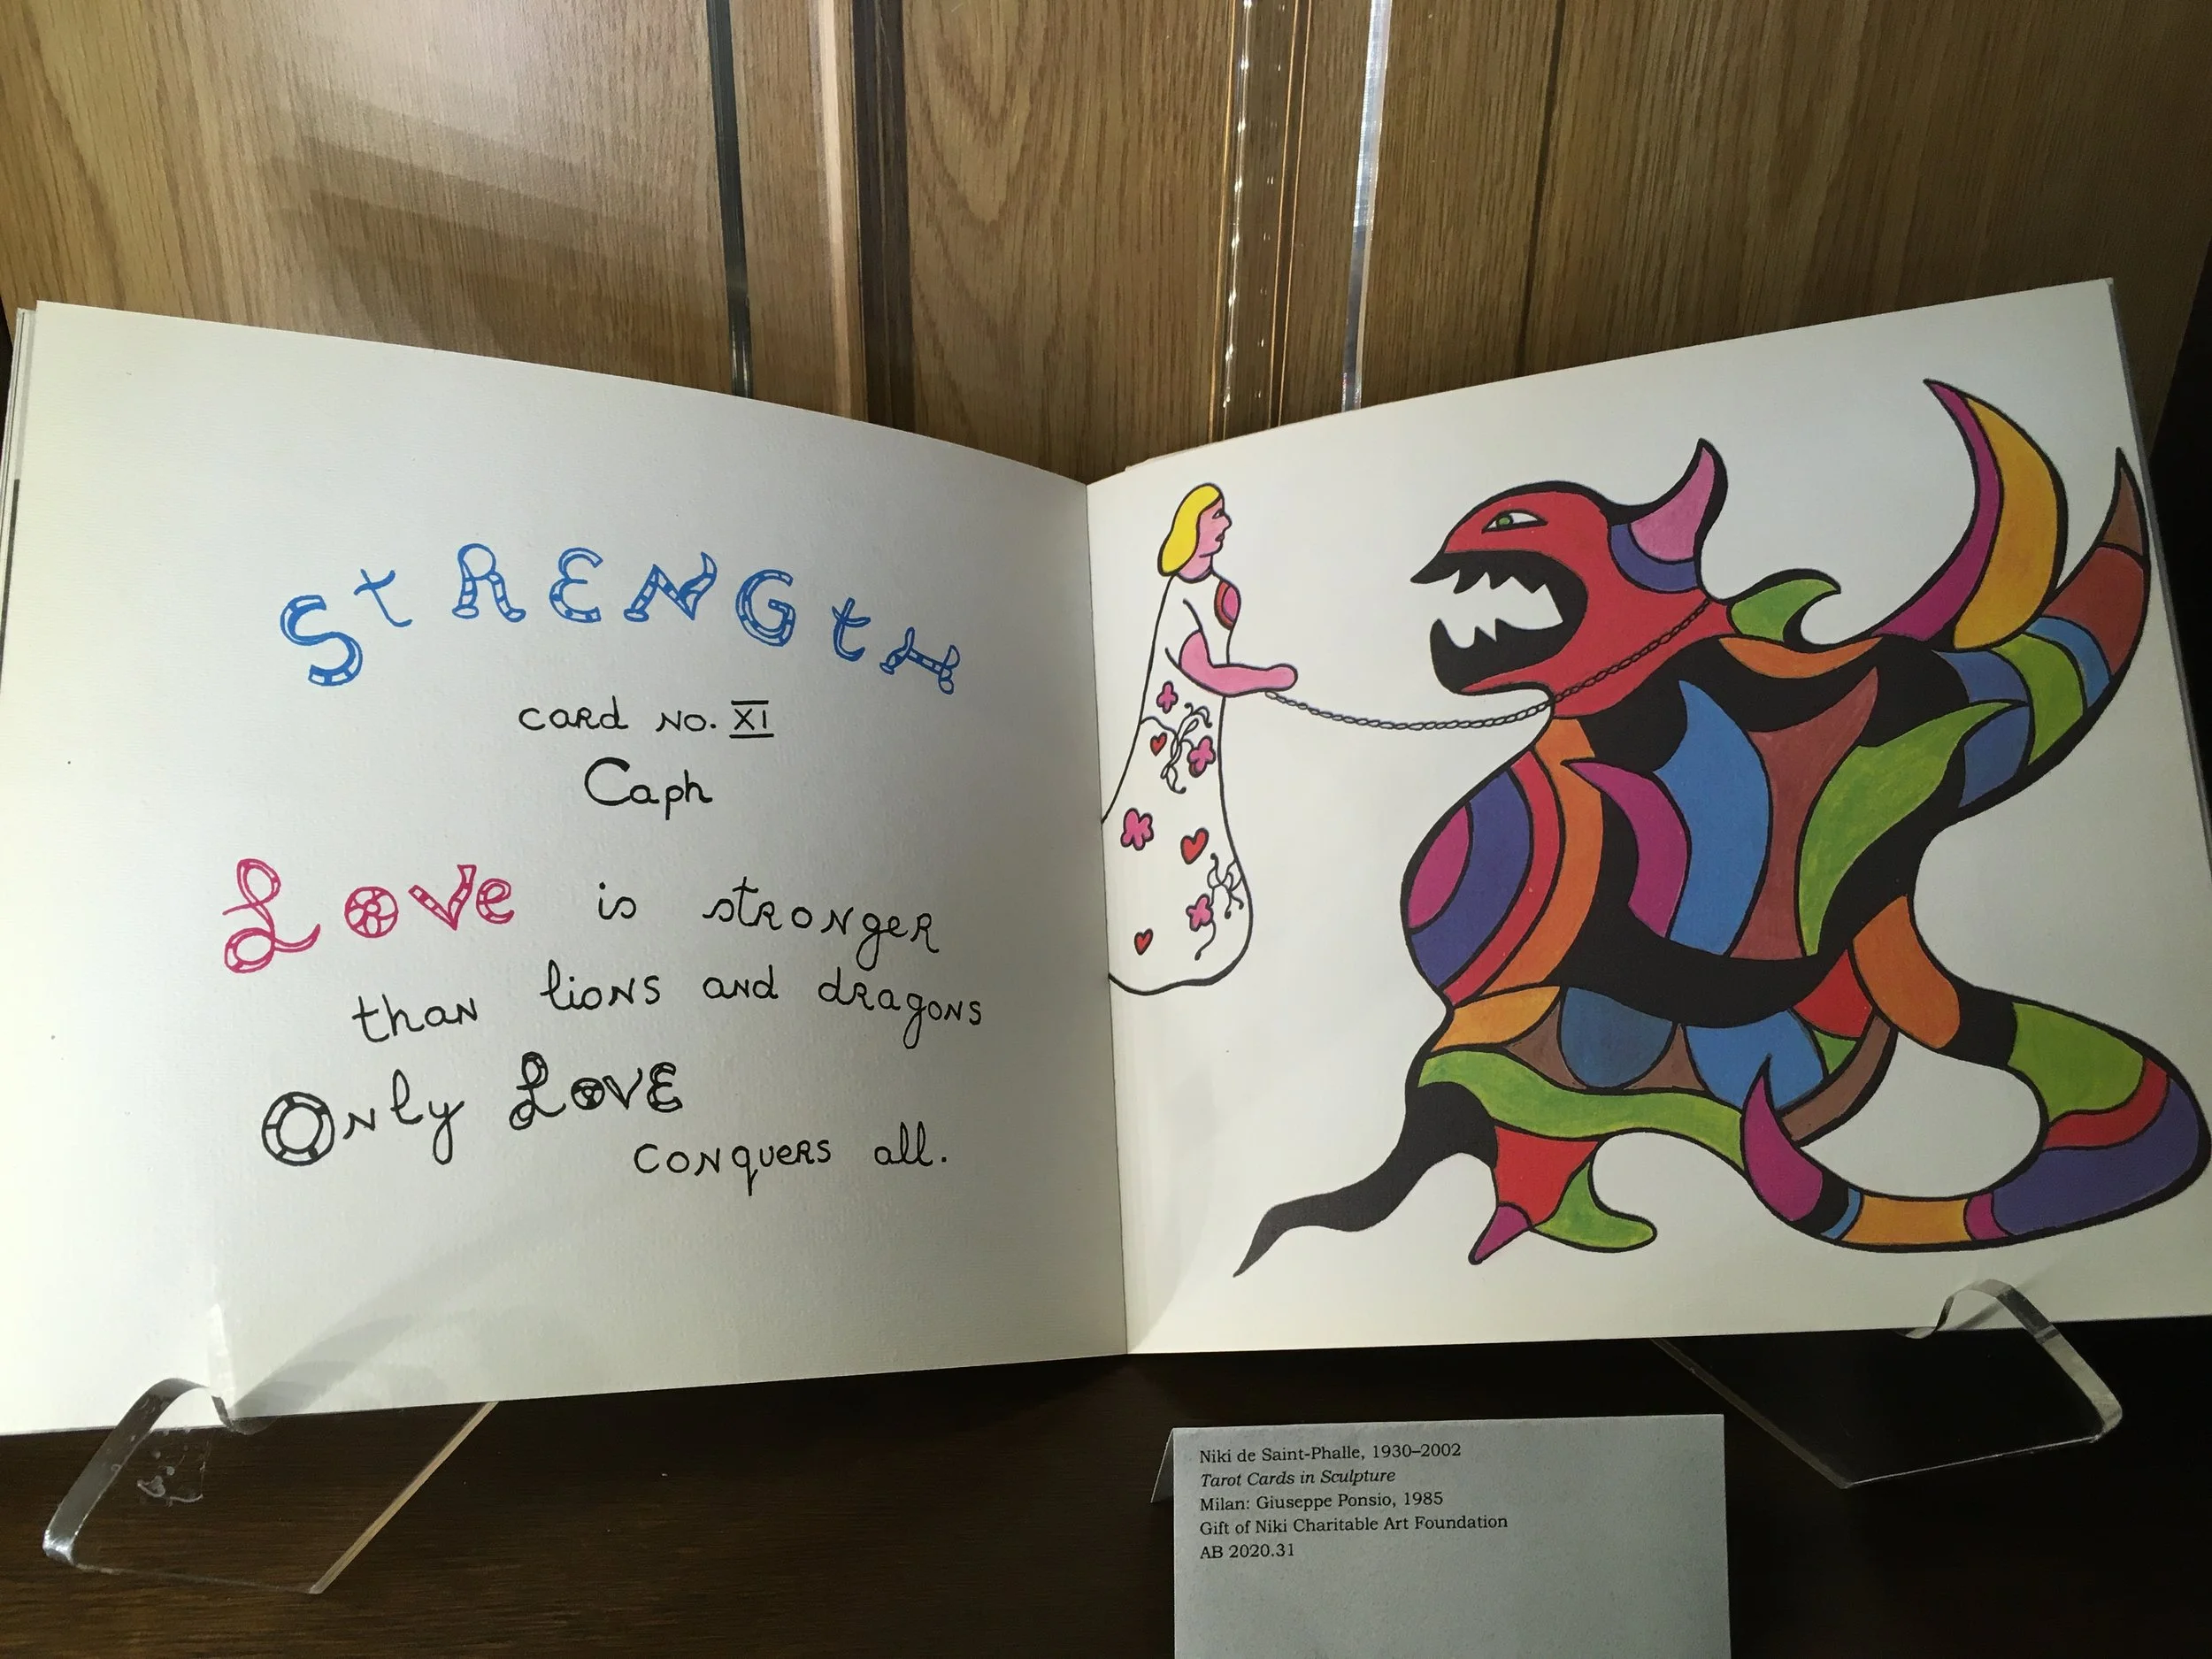 StRENGtH
card No. XI
Caph
Love is stronger
than lions and dragons
Only Love
conquers all.
Niki de Saint-Phalle, 1930–2002
Tarot Cards in Sculpture
Milan: Giuseppe Ponsio, 1985
Gift of Niki Charitable Art Foundation
AB 2020.31